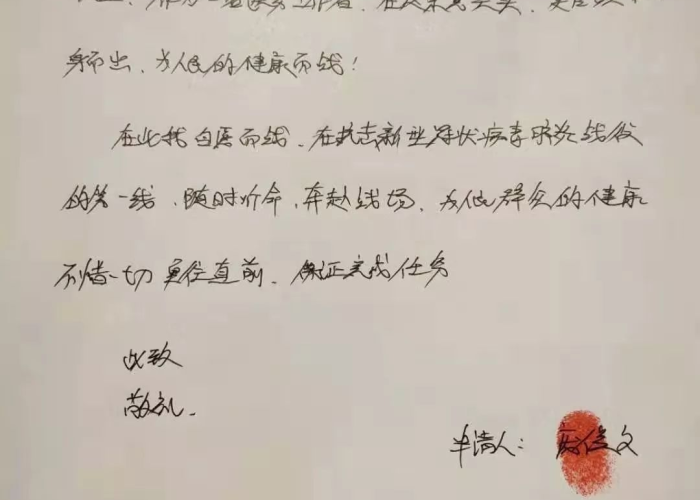 作为一名医务工作者,在
身而出、为人民的健康而战!
在此我自愿而战、在抗击新型冠状病毒肺炎战役
的第一线、随时听命,奔赴战场、为他群众的健康
不惜一切 直前、保证完成任务
此致
敬礼.
申请人: 文